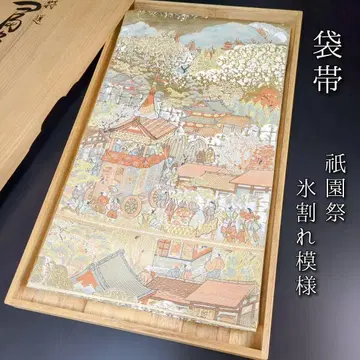 袋帯
祇園祭
氷割れ模様